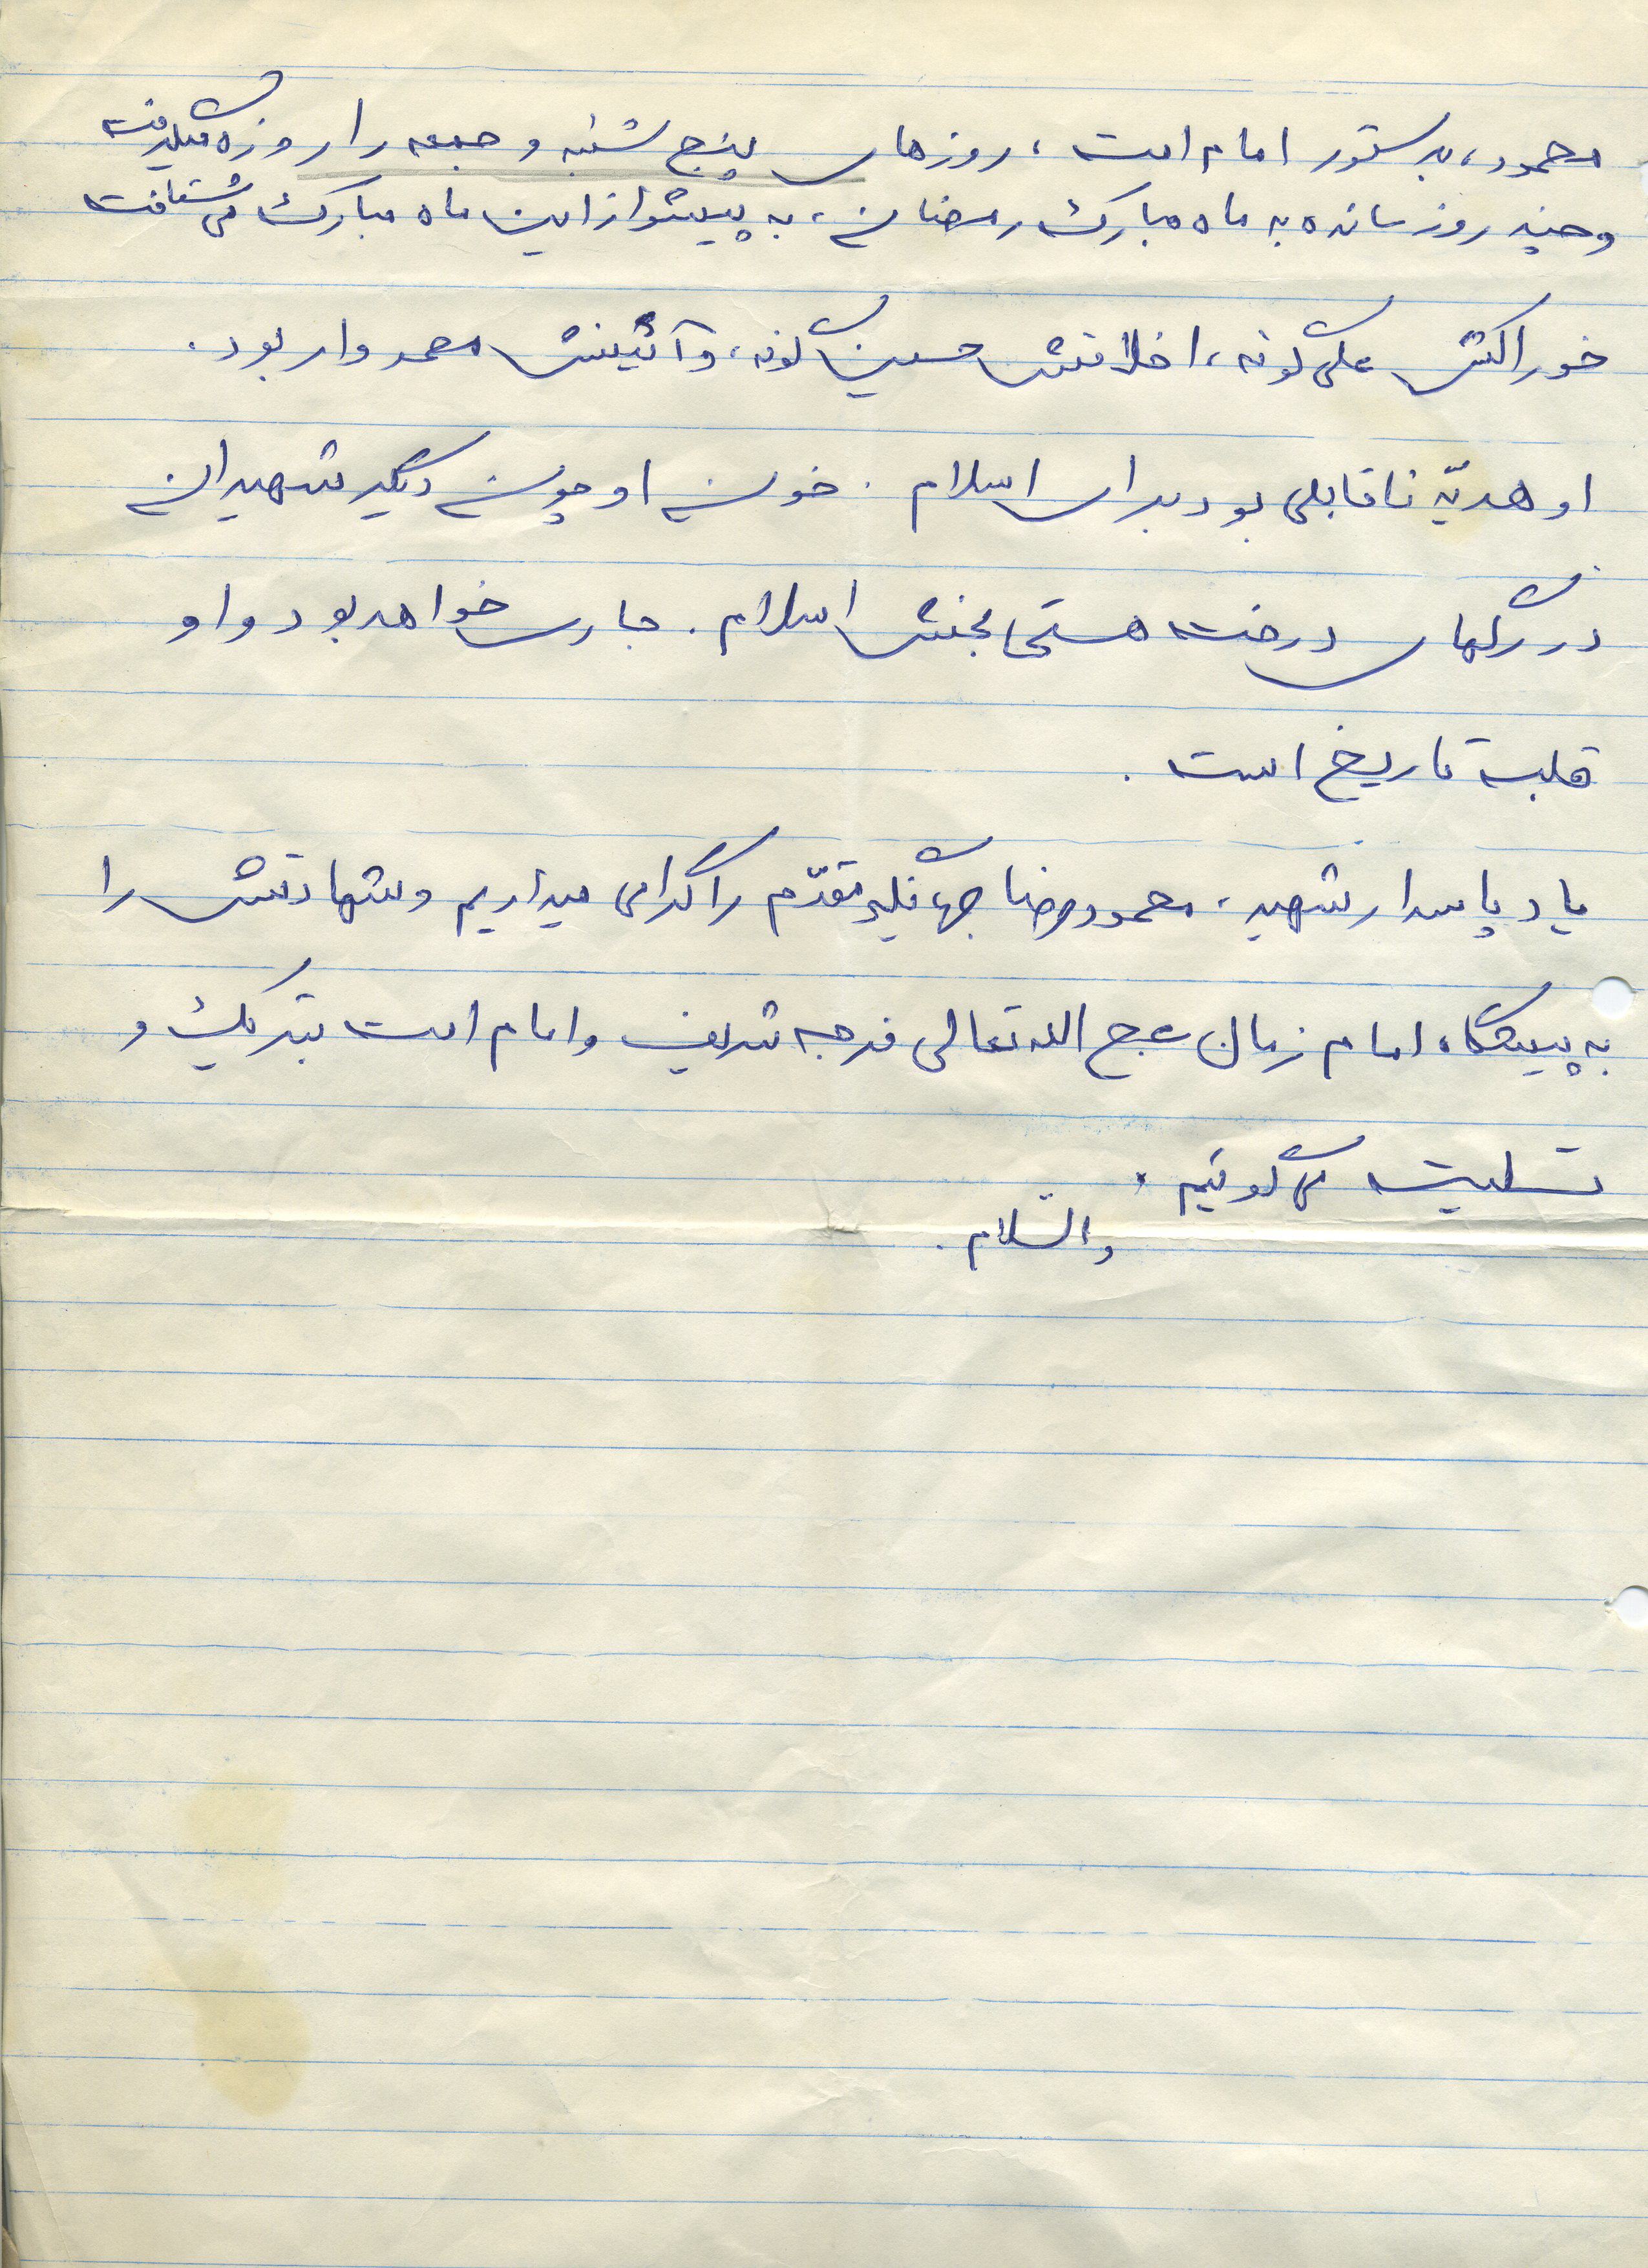 محمود، بدستور امام امت، روزهای پنج شنبه و جمعه را روزه میگرفت
و چند روز مانده به ماه مبارک رمضان، به پیشواز این ماه مبارک می شتافت
خوراکش علی گونه، اخلاقش حسین گونه، و آئینش محمد وار بود.
او هدیّه ناقابلی بود برای اسلام. خون او چون دیگر شهیدان
در رگهای درخت هستی بخش اسلام. جاری خواهد بود و او
قلب تاریخ است.
یاد پاسدار شهید، محمودرضا جهانگیر مقدّم را گرامی میداریم و شهادتش را
به پیشگاه امام زمان عج الله تعالی فرجه شریف و امام امت تبریک و
تسلیت می گوئیم.
والسّلام.